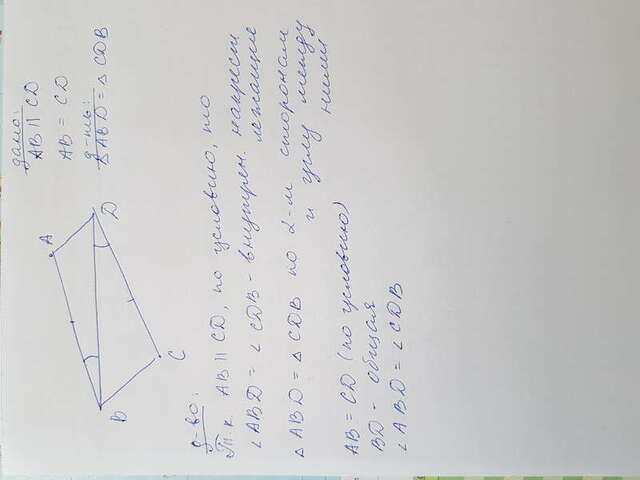 дано:
AB || CD
AB = CD
д-ть:
△ ABD = △ CDB
A
B
D
C
д-во:
Т.к. AB || CD, по условию, то
∠ ABD = ∠ CDB - внутрен. накрест
лежащие
△ ABD = △ CDB по 2-м сторонам
и углу между
ними
AB = CD (по условию)
BD - общая
∠ ABD = ∠ CDB